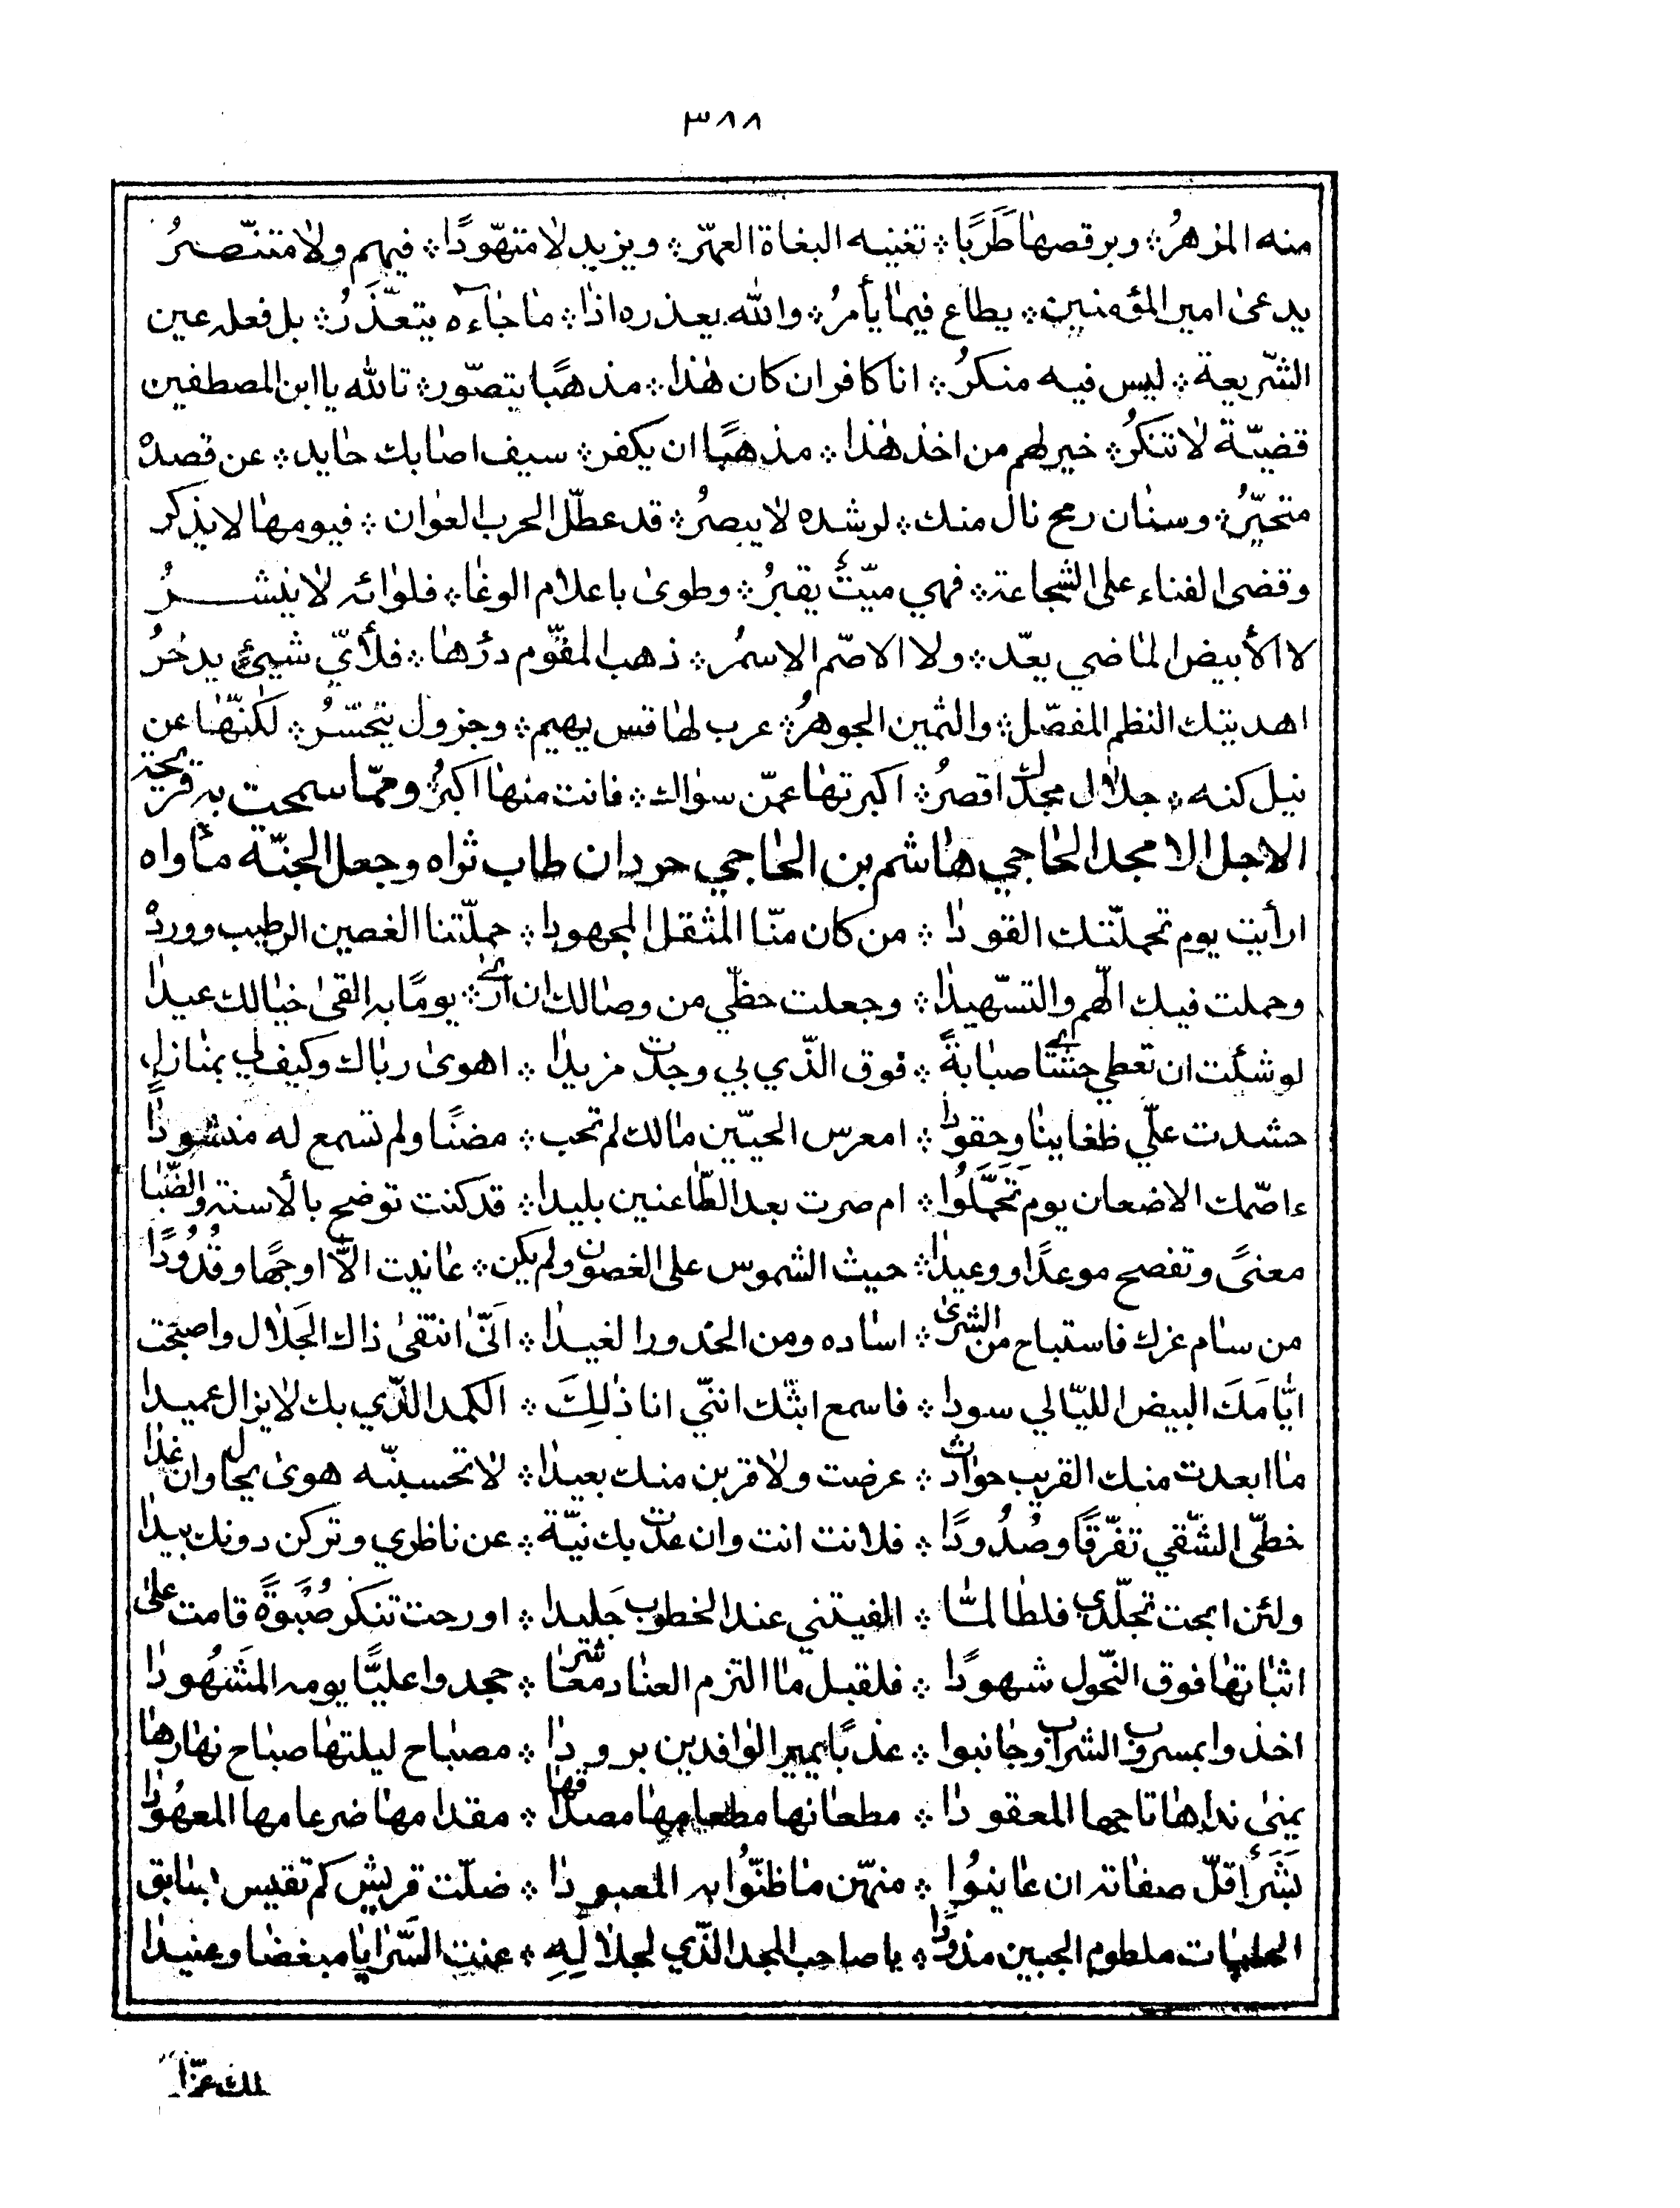 ٣٨٨
منه المزهرُ ⁘ وبرقصها طَرَبًا ⁘ تغنيه البغاة العهّر ⁘ ويزيد لا متهّودًا ⁘ فيهم ولا متنّصرُ
يدعى امير المؤمنين ⁘ يطاع فيما يأمرُ ⁘ والله يعذره اذا ⁘ ما جاءه يتعّذَرُ ⁘ بل فعله عين
الشّريعة ⁘ ليس فيه منكرُ ⁘ انا كافر ان كان هذا ⁘ مذهبًا يتصّور ⁘ تالله يا ابن المصطفين
قضيّة لا تنكرُ ⁘ خير لهم من اخذ هذا ⁘ مذهبًا ان يكفر ⁘ سيف اصابك حايد ⁘ عن قصده
متحيّرُ ⁘ وسنان رمح نال منك ⁘ لرشده لا يبصرُ ⁘ قد عطّل الحرب العوان ⁘ فيومها لا يذكر
وقضى الفناء على الشجاعة ⁘ فهي ميّتٌ يقبرُ ⁘ وطوى باعلام الوغا ⁘ فلوائه لا ينشرُ
لا الأبيض الماضي يعّد ⁘ ولا الاصّم الاسمرُ ⁘ ذهب المقّوم درُها ⁘ فلأيّ شيئٍ يدخرُ
اهديتك النظم المفصّل ⁘ والثمين الجوهرُ ⁘ عرب لها قس يهيم ⁘ وجزول يتحّسرُ ⁘ لكنّها عن
نيل كنه ⁘ جلال مجدك اقصرُ ⁘ اكبرتها عمّن سواك ⁘ فانت منها اكبرُ ⁘ وممّا سمحت به قريحة
الاجل الامجد الحاجي هاشم بن الحاجي حردان طاب ثراه وجعل الجنّة مأواه
ارأيت يوم تحملّتك القودا ⁘ من كان منّا المثقل المجهودا ⁘ حملّتنا الغصين الرطيب وورده
وحملت فيك الّهم والتسّهيدا ⁘ وجعلت حظّي من وصالك ان أرى ⁘ يومًا به القى خيالك عيدا
لو شئت ان تعطي حشًى صبابةً ⁘ فوق الّذي بي وجدت مزيدا ⁘ اهوى رباك وكيف لي بمنازل
حشدت علّي ظغاينا وحقودًا ⁘ امعرس الحيّين مالك لم تحب ⁘ مضنًا ولم تسمع له منشودًا
ءاصّمك الاضعان يوم تَحَمَّلُوا ⁘ ام صرت بعد الظّاعنين بليدا ⁘ قد كنت توضح بالأسنة والضّبا
معنىً وتفصح موعدًا ووعيدا ⁘ حيث الشموس على الغصون ولم يكن ⁘ عانيت الّا اوجهًا وقُدُودًا
من سام عزك فاستباح من الشرى ⁘ اساده ومن الخدور الغيدا ⁘ انّى انتقى ذاك الجَلال واصبحت
ايّامَكَ البيض الليّالي سودا ⁘ فاسمع ابثك انتّي انا ذلِكَ ⁘ الكمد الّذي بك لا يزال عميدا
ما ابعدت منك القريب حوادث ⁘ عرضت ولا قربن منك بعيدا ⁘ لا تحسبنّه هوى يحال وان غدا
خطّى الشّقي تفرّقًا وصُدُودًا ⁘ فلانت انت وان عدت بك نيّة ⁘ عن ناظري وتركن دونك بيدا
ولئن ابحت تجلّدي فلطالمّا ⁘ الفيتني عند الخطوب جَليدا ⁘ او رحت تنكر صُبُوَةً قامت على
اثباتها فوق النّحول شهودًا ⁘ فلقبل ما التزم العناد معشرًا ⁘ جحدوا عليًّا يومه المشَهُودا
اخذوا بمسروب الشراب وجانبوا ⁘ عذبًا يمير الوافدين برودا ⁘ مصباح ليلتها صباح نهارها
يمنى نداها تاجها المعقودا ⁘ مطعانها مطعامها مصداقها ⁘ مقدامها ضرعامها المعهُودا
بَشَرٌ اقلّ صفاته ان عاينوُا ⁘ منهّن ما ظنّوُا به المعبودا ⁘ ضلّت قريش كم تقيس بسابق
الحلبات ملطوم الجبين مذودًا ⁘ يا صاحب المجد الّذي لجلالِهِ ⁘ عنت السّرايا مبغضا وعنيدا
لك غرّا